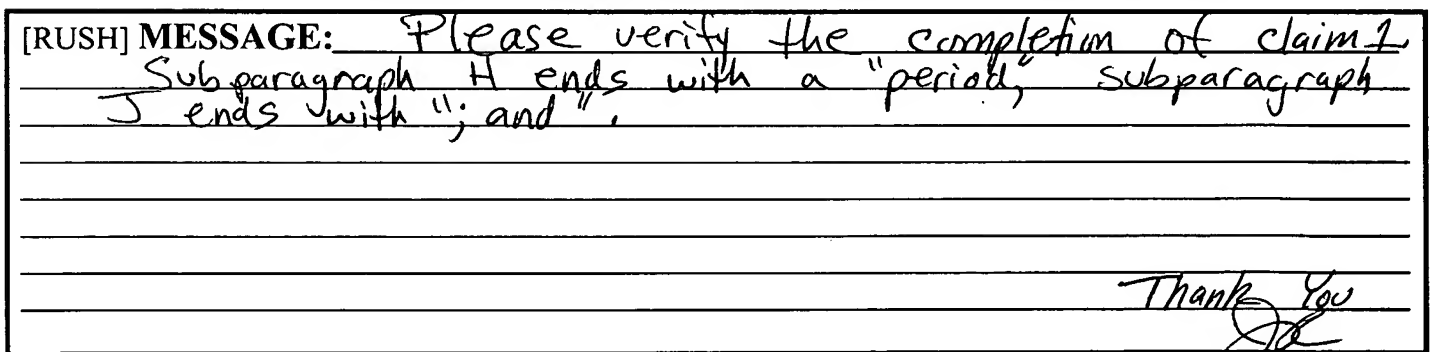 [RUSH] MESSAGE: Please verify the completion of claim 1.
Subparagraph H ends with a "period," subparagraph
J ends with "; and".
Thank You